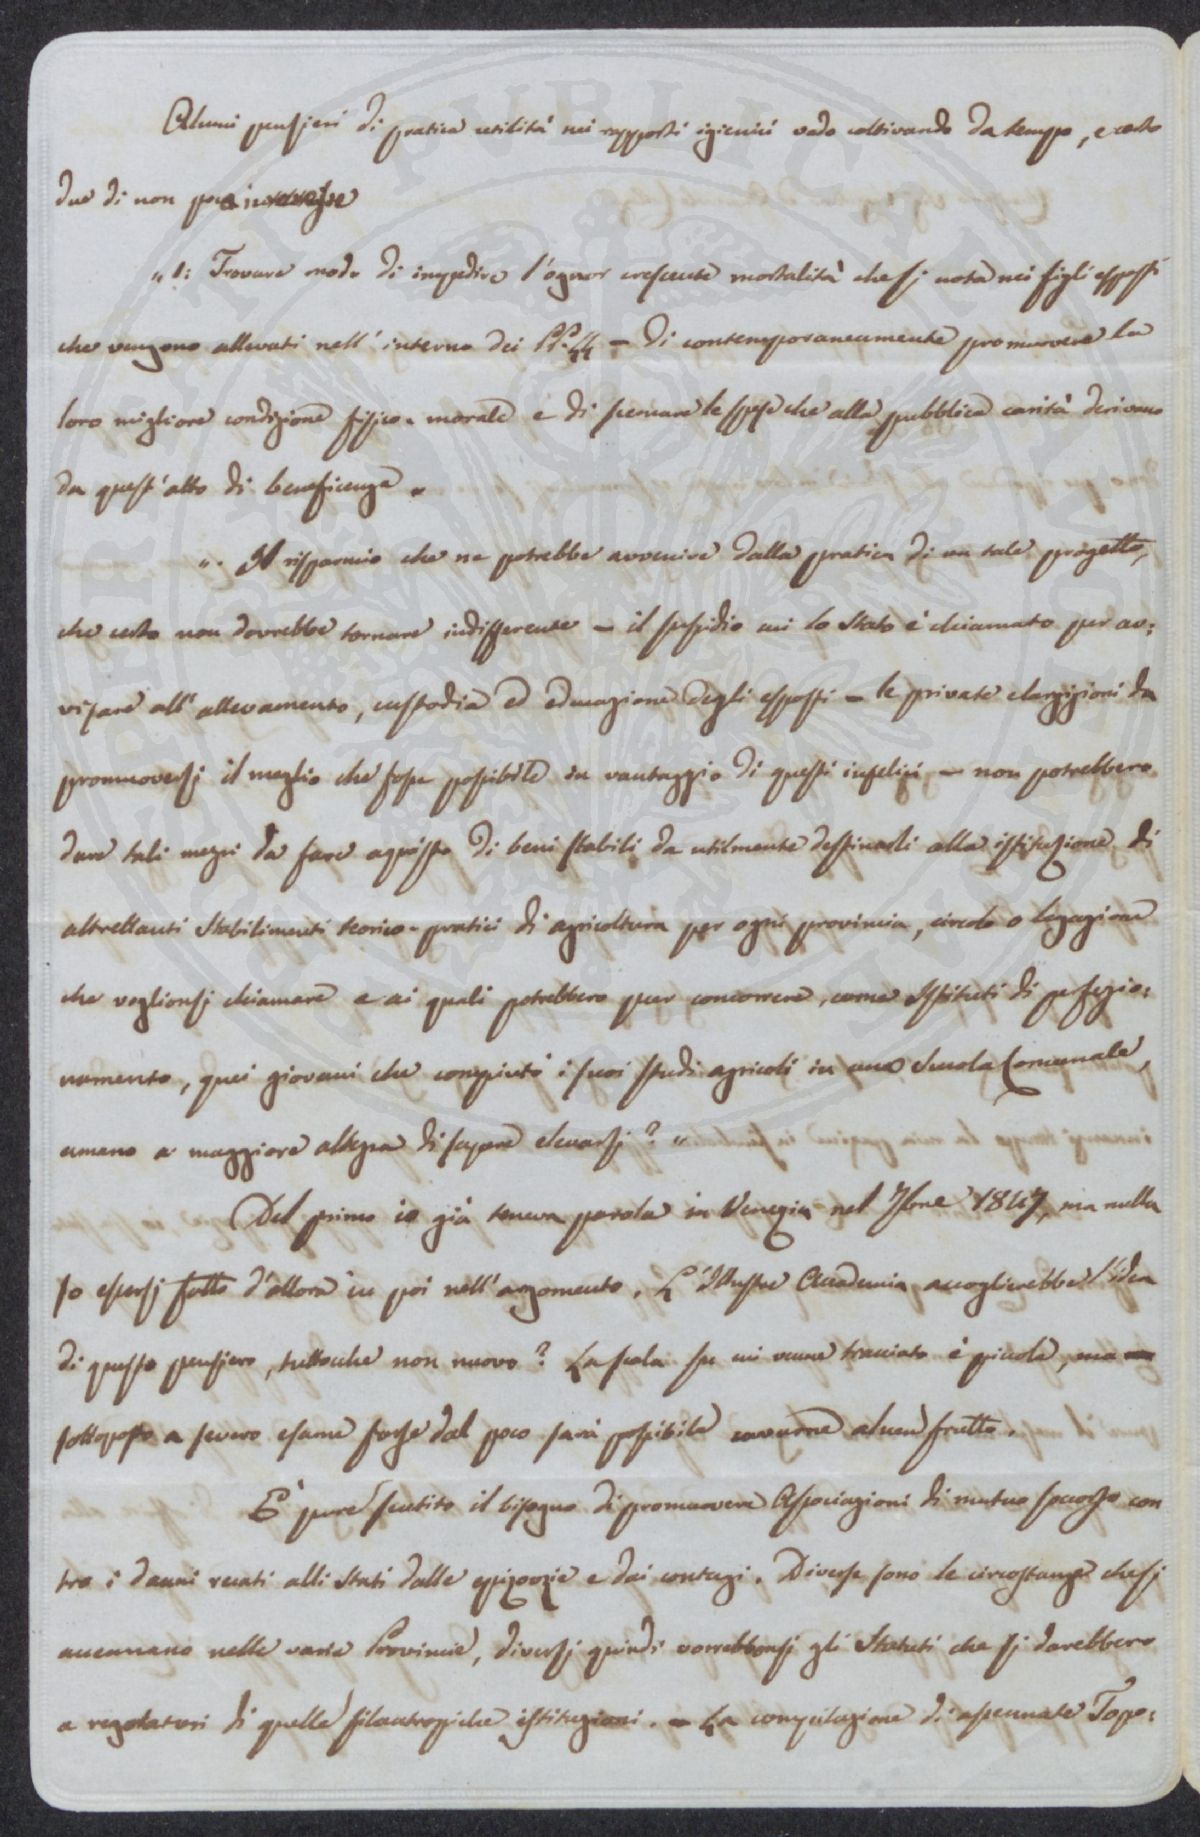 Alcuni pensieri di pratica utilità nei rapporti igienici vado coltivando da tempo, e certo
due di non poco interesse
„ 1: Trovare modo di impedire l'ognor crescente mortalità che si nota nei figli esposti
che vengono allevati nell'interno dei PP. LL – di contemporaneamente promuovere la
loro migliore condizione fisico-morale e di scemare le spese che alla pubblica carità derivano
da quest'atto di beneficenza „
„. Il risparmio che ne potrebbe avvenire dalla pratica di un tale progetto,
che certo non dovrebbe tornare indifferente – il sussidio cui lo Stato è chiamato per av:
visare all'allevamento, custodia ed educazione degli esposti – le private elargizioni da
promuoversi il meglio che fosse possibile in vantaggio di questi infelici – non potrebbero
dare tali mezzi da fare acquisto di beni stabili da utilmente destinarli alla istituzione di
altrettanti Stabilimenti teorico-pratici di agricoltura per ogni provincia, circolo o legazione
che voglionsi chiamare e ai quali potrebbero pur concorrere, come Istituti di perfezio:
namento, quei giovani che compiuto i suoi studi agricoli in una Scuola Comunale,
amano a maggiore altezza di sapere elevarsi? „
Del primo io già teneva parola in Venezia nel 7bre 1847, ma nulla
so essersi fatto d'allora in poi nell'argomento. L'Illustre Accademia accoglierebbe l'idea
di questo pensiero, tuttocchè non nuovo? La scala su cui venne tracciato è piccola, ma
sottoposto a severo esame forse dal poco sarà possibile cavarne alcun frutto.
È pure sentito il bisogno di promuovere Associazioni di mutuo soccorso con
tro i danni recati alli Stati dalle epizoozie e dai contagi. Diverse sono le circostanze che si
accennano nelle varie Provincie, diversi quindi vorrebbonsi gli Statuti che si darebbero
a regolatori di quelle filantropiche istituzioni. – La compilazione di assennate Topo: